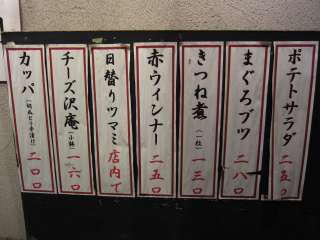 ポテトサラダ 二五〇
まぐろブツ 二八〇
きつね煮 (一枚) 一三〇
赤ウインナー 二五〇
日替りツマミ 店内で
チーズ沢庵 (小鉢) 一六〇
カッパ 二〇〇